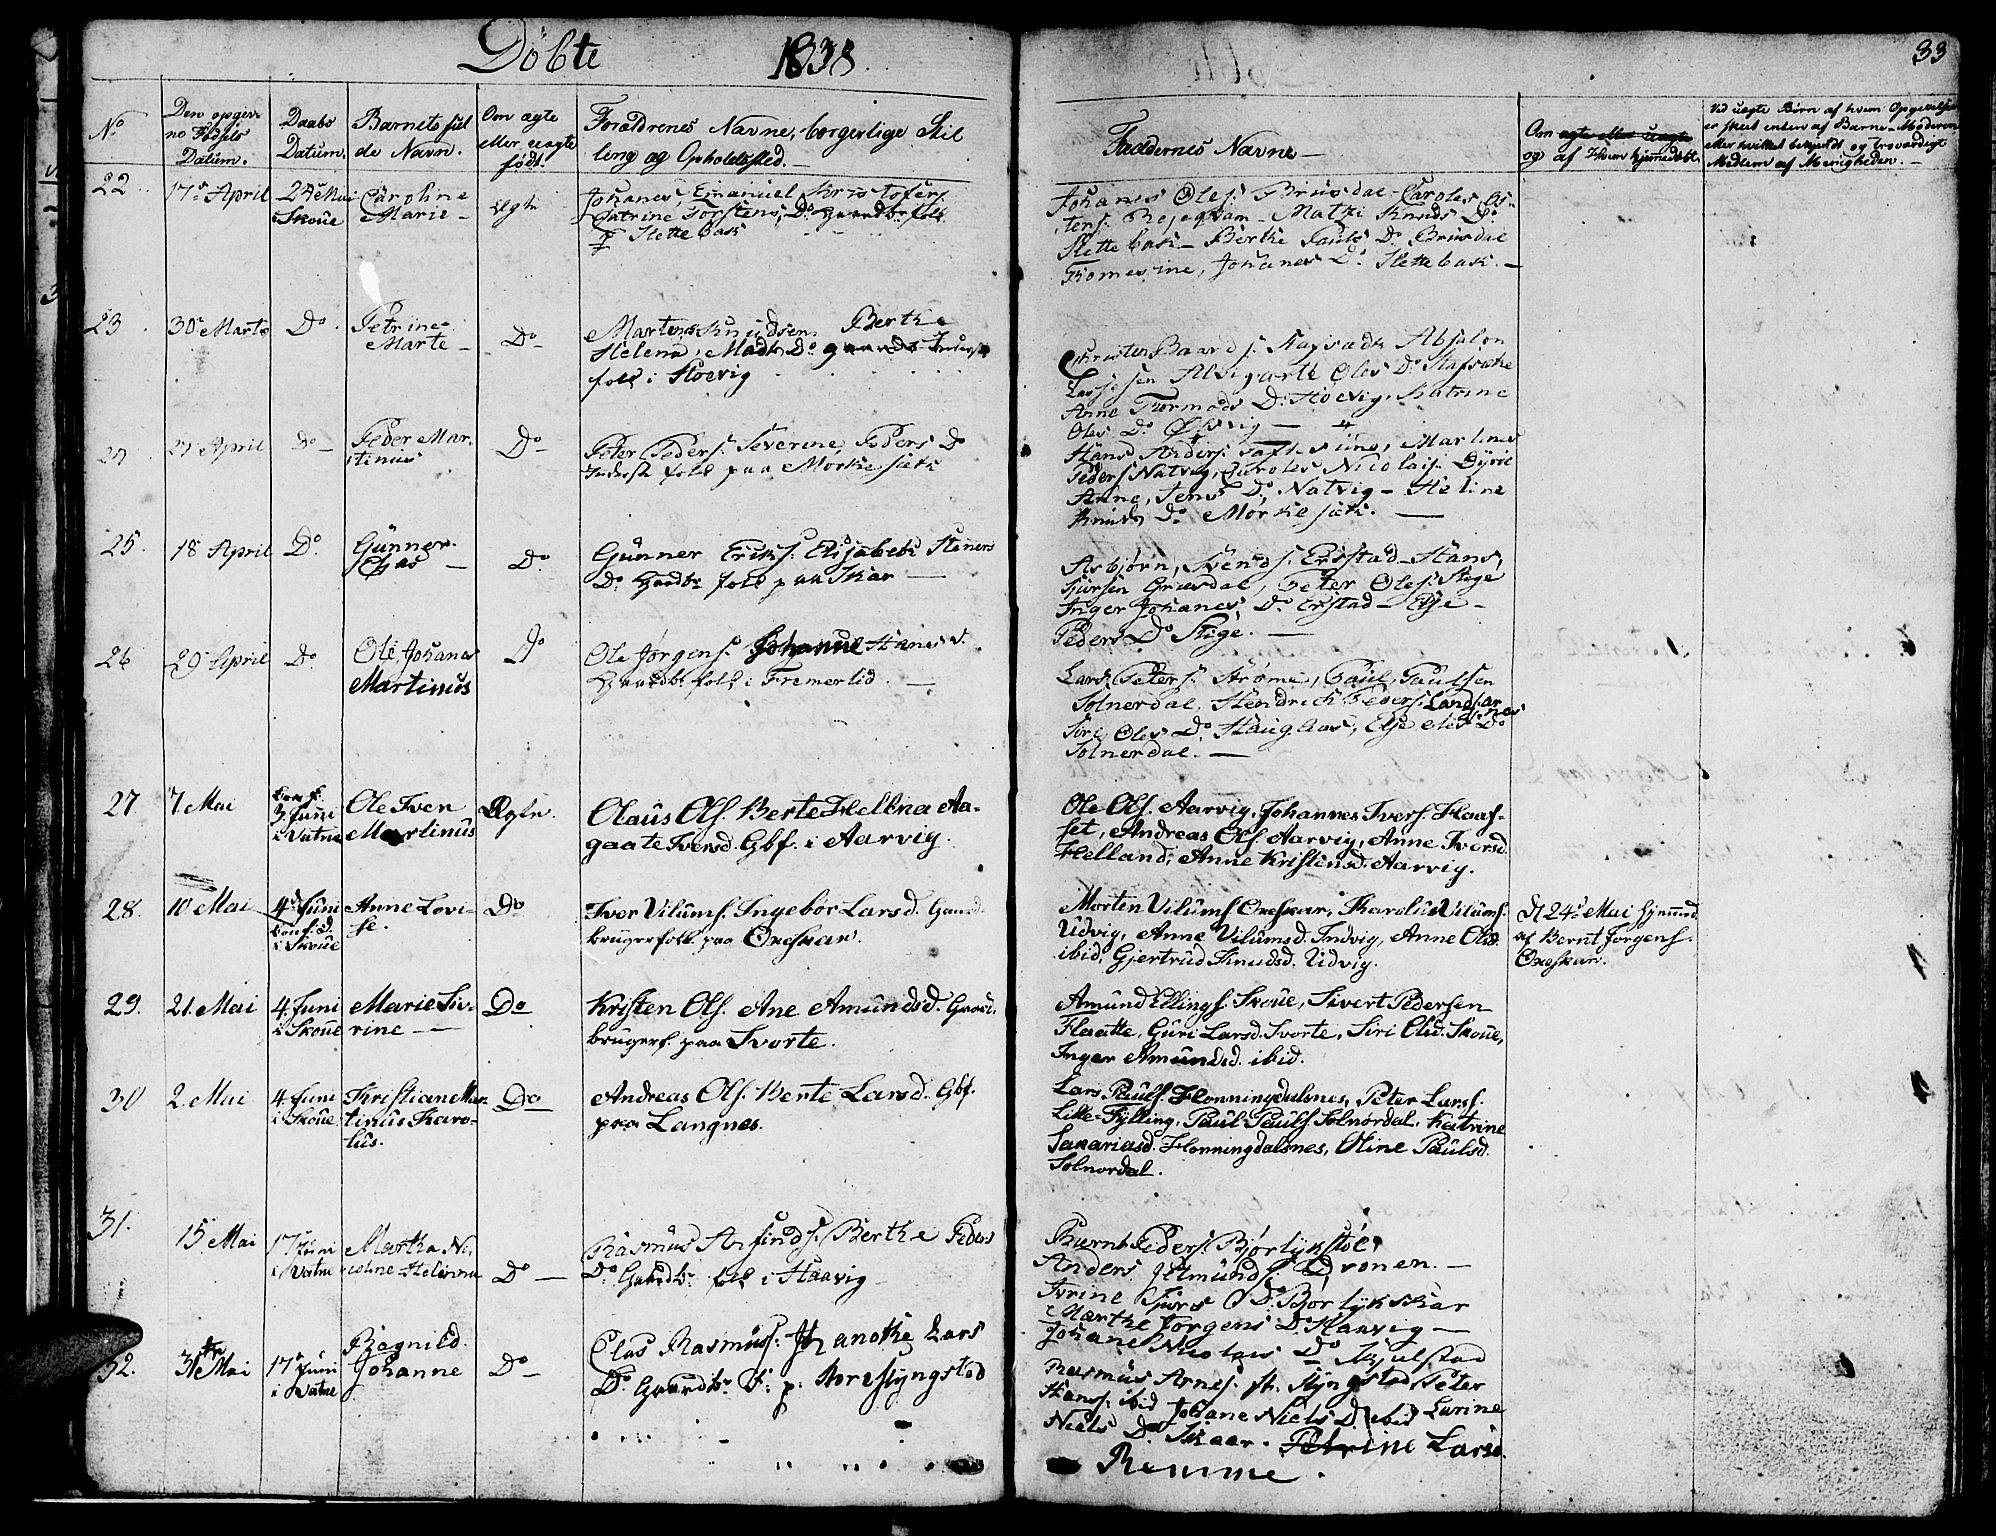 Döbte 1838.
33
No
Den opgiv-
ne Födsels
Datum.
Daabs
Datum.
Barnets ful
de Navn.
Om ægte
eller uægte
födt.
Forældrenes Navne, borgerlige Stil
ling og Opholdssted. —
Faddernes Navne —
Om ægte eller uægte
og af Hvem hjemedöbt.
Vid uægte Börn af hvem Opgivelsen
er skeet enten af Barne-Moderen
eller hvilket bekjendt og troværdigt
Medlem af Menigheden. —
22. 17de April 24de Mai
i Skoüe
Caroline
Marie —
Ægte
Johanes, Emanuel Kristofers.
Catrine Torstens, Do Gaardbr. folk
p Slettebak
Johanes Oles. Brusdal — Caroles Os-
tens. — Matti Knuds Do
Slettebak — Berthe Pauls Do Brusdal
Thomesine, Johanes Do Slettebak. —
23. 30te Marts Do.
Petrine
Marte —
Do
Martens Knudsen Berthe
Helena, Mads Do Inderst
folk i Stoevig
Christen Baards. Absalon
Oles Do
Anne Tormods Do Stoevig, Katrine
Oles Do
24 21 April Do —
Peder Mar-
tenius
Do
Peter Peders. Severine, Peders Do
Inderst folk paa Morkesæt
Hans Anders. Martines
Peders. Natvig, Caroles Nicolais.
Anne, Jens Do Natvig — Heline
Knuds Do Mörkesæt. —
25. 18 April Do.
Günner
—
Do
Günner Eriks. Elisabeth Steners
Do Gaardbr folk paa Skar —
Asbjörn, Svends. Erstad — Hans,
Sjursen Grusdal, Peter Oles. Stege
Inger Johanes, Do Erstad — Else —
Peders Do Stige. —
26 29 April Do
Ole Johanes
Martinus
Do
Ole Jörgens. Johanne Hanes D.
Gaardbr. folk i Fremerlid. —
Lars Peters. Ströme, Paul, Paulsen
Solnerdal, Hendrich Peders. Landsar
Siri, Oles Do Haugaas, Else Oles Do
Solnerdal. —
27 7 Mai
Conf.
3 Juni
i Vatne
Ole Iver
Martinus
Ægte.
Olaus Ols. Berte Hellena Aa-
gaate Iversd. Gbf. i Aarvig.
Ole Ols. Aarvig, Johannes Ivers. Flaas-
set, Andreas Ols. Aarvig, Anne Iversd.
Helland, Anne Kristensd. Aarvig.
28. 10 Mai
4de Juni
Conf. d.
i Skoue
Anne Lovi-
se.
Do
Iver Vilums. Ingebor Larsd. Gaard-
brugerfolk paa Oxeskar.
Morten Vilums. Oxeskar, Karolus Vilums.
Udvig, Anne Vilumsd. Indvig, Anne Olsd.
ibid, Gjertrud Knudsd. Udvig.
Dt 24de Mai hjemmed.
af Bernt Jörgens.
Oxeskar.
29. 21. Mai
4 Juni
i Skoue
Marie Siv-
rine —
Do
Kristen Ols. Ane Amundsd. Gaard-
brugerf. paa Svorte.
Amund Ellings. Skoue, Sivert Pedersen
Flaatte, Guri Larsd. Svorte, Siri Olsd. Skoue,
Inger Amundsd. ibid.
30 2. Mai
4 Juni
i Skoue
Kristiane Mar-
tinus Karo-
lus.
Do
Andreas Ols. Berte Larsd. Gbf.
paa Langnes.
Lars Pauls. Flonningdalsnes, Peter Lars.
Lille-Fylling, Paul Pauls. Solnordal, Katrine
Sakariasd. Flonningdalsnes, Oline Paulsd.
Solnordal.
31. 15 Mai
17de Juni
i Vatne
Martha Ni-
coline Helenna
Do —
Rasmus Anfinds. Berthe Peders
Do Gaardbr. folk i Haavig
Bernt Peders. Björlykstöl,
Anders Amunds. Dronen. —
Ivrine Sjurs Do Börlykskar
Marthe Jorgens Do Haavig —
Johane Nicolais Do Kjulstad
32. 31te Mai
17de Juni
i Vatne
Ragnild.
Johanne
Do —
Elas Rasmus. Lars
Do. Gaardbr. F. p.
Rasmus Arnes. Slyngstad Peter
Hans. ibid Johane Niels D ibid Larine
Niels Do Skaar. Petrine Lars.
Remme.